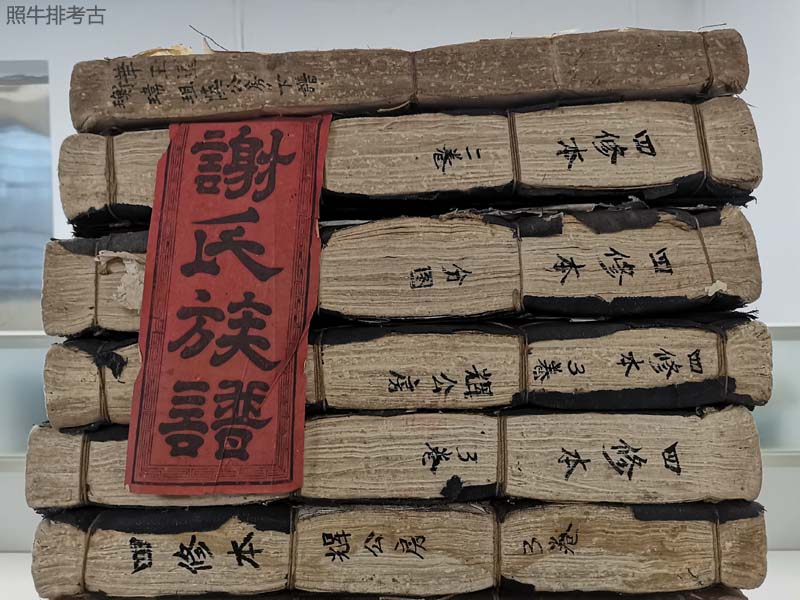 照牛排考古
謝氏族譜
四修本 二卷
四修本
四修本 3卷 輯公房
四修本 3卷
四修本 輯公房 3卷